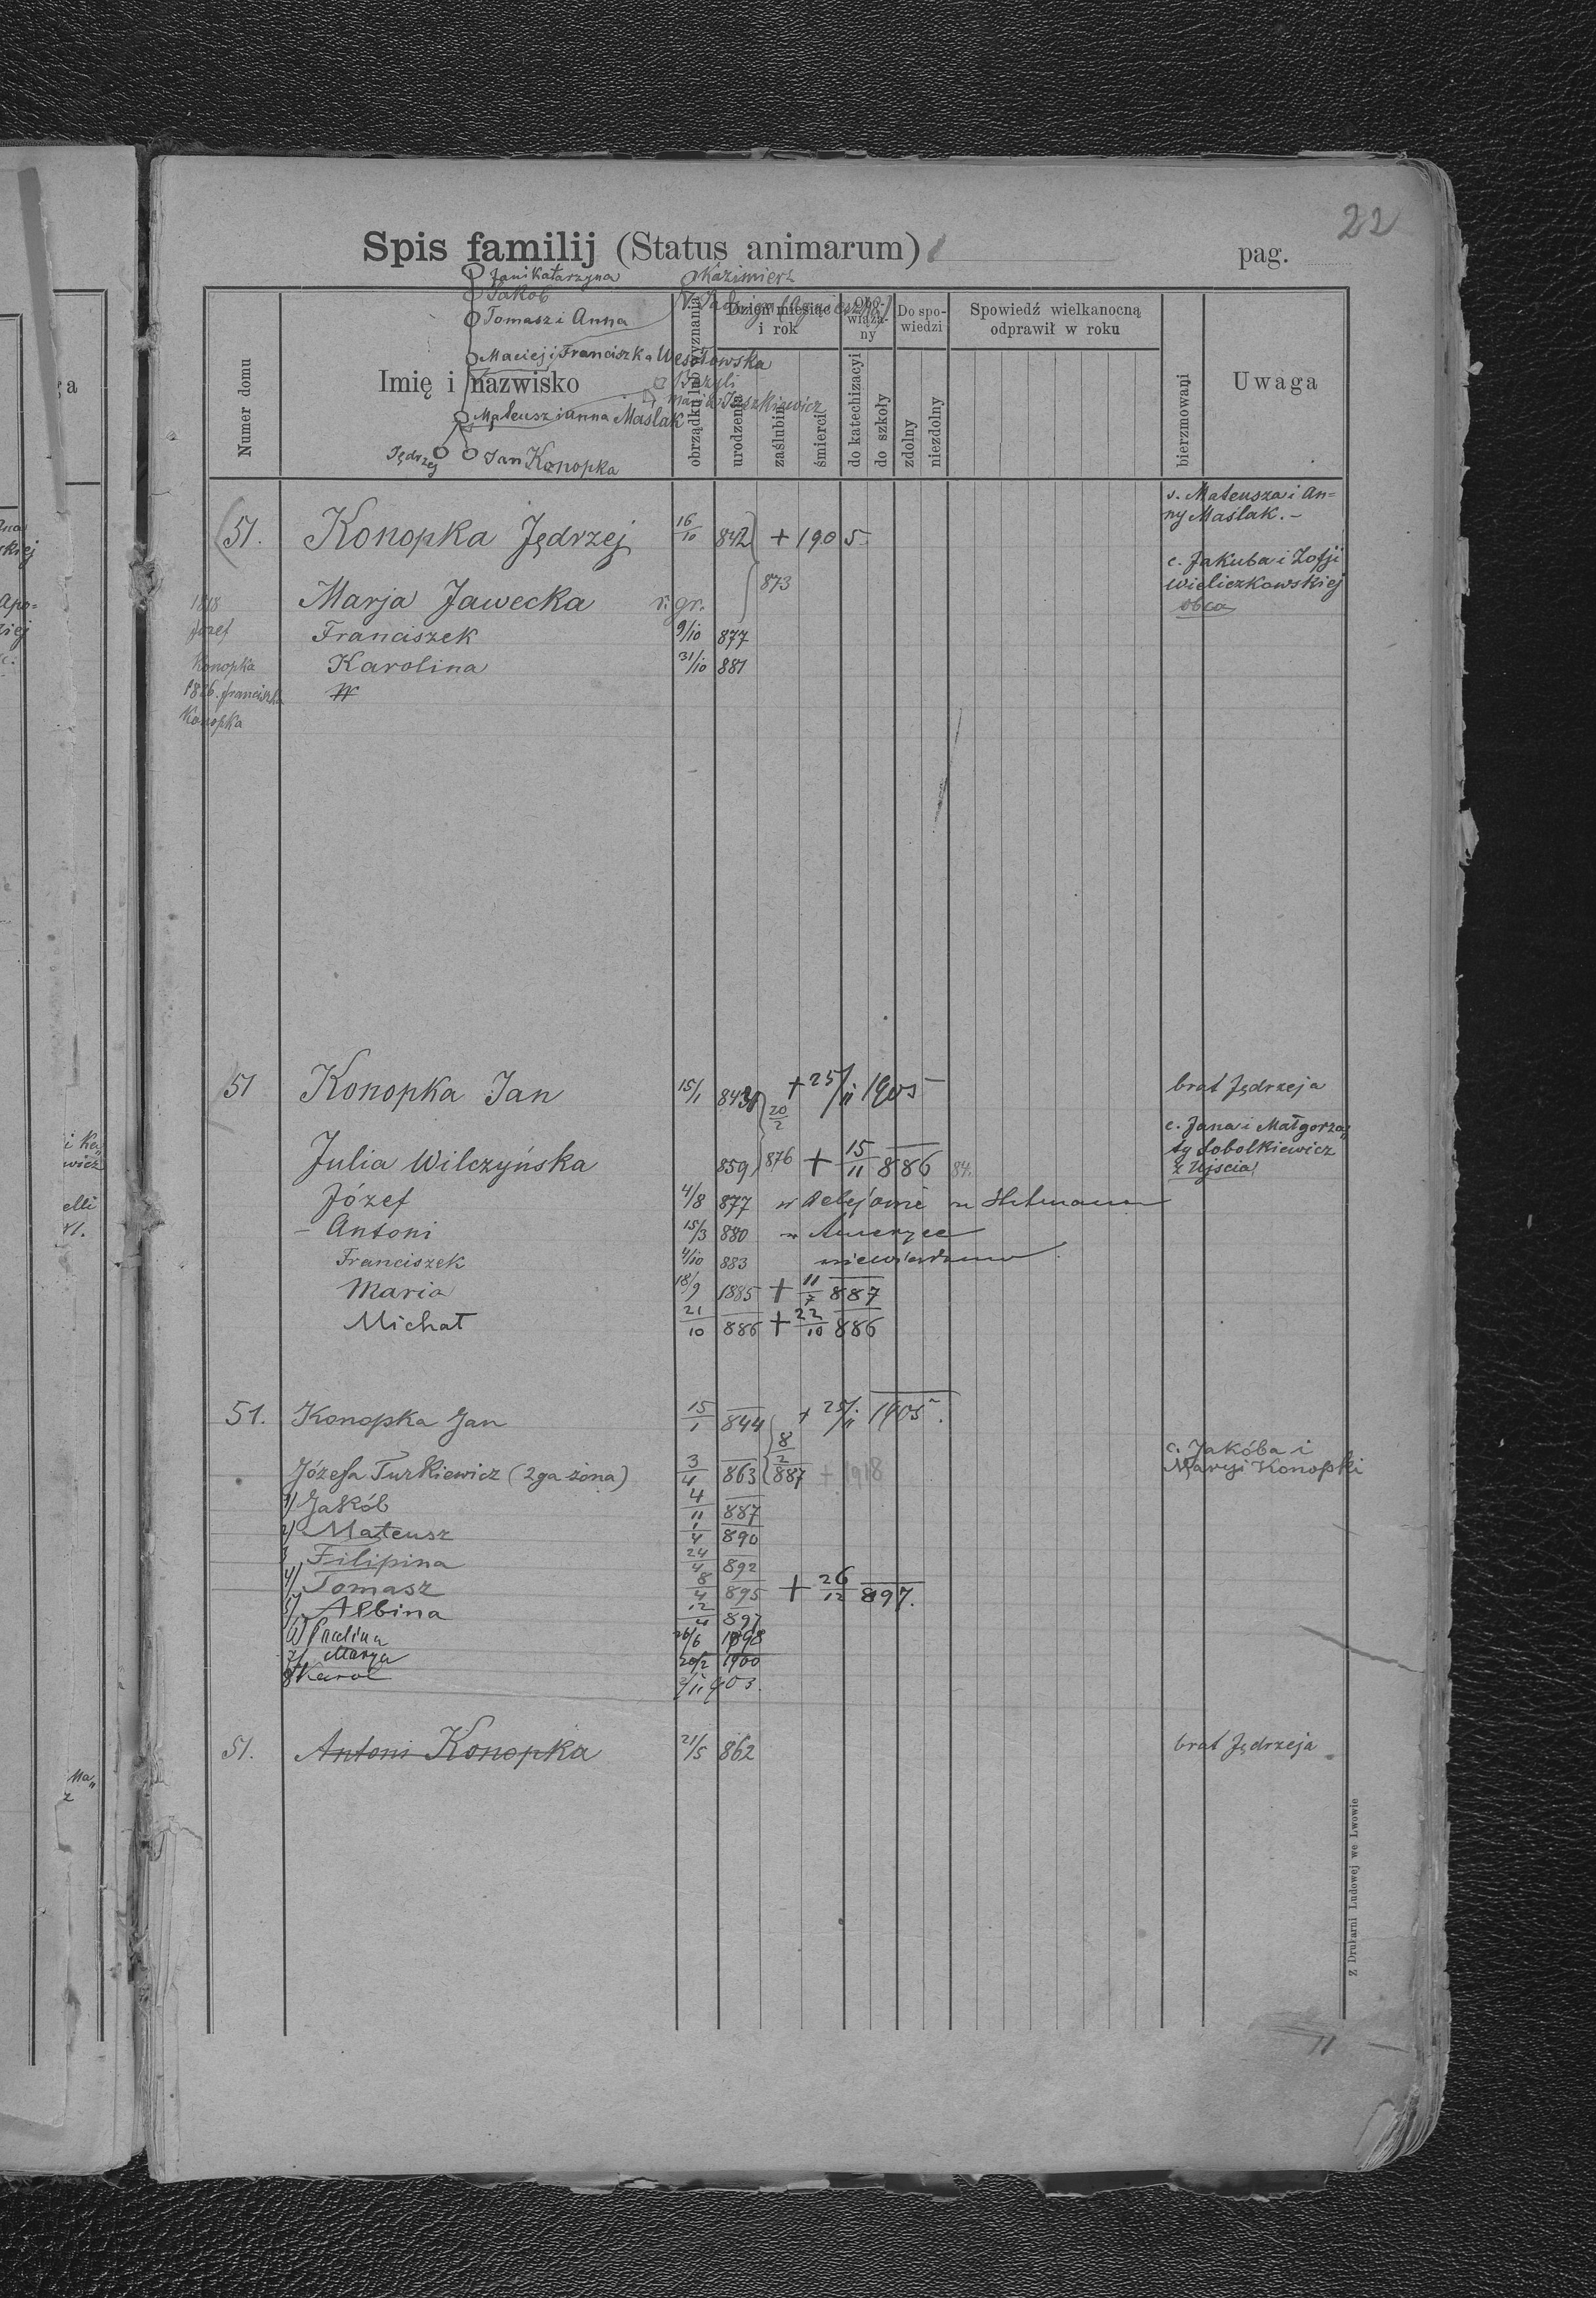 22
Spis familij (Status animarum)
pag.
Jan i Katarzyna
Kazimierz
Jakób
Tomasz i Anna
Maciej i Franciszka Wesołowska
Bazyli
Mateusz i Anna Maślak
Jędrzej
Jan Konopka
Numer domu
Imię i nazwisko
obrządku lub wyznania
Dzień miesiąc i rok
urodzenia
zaślubin
śmierci
Obowiązany
do katechizacyi
do szkoły
Do spowiedzi
zdolny
niezdolny
Spowiedź wielkanocną odprawił w roku
bierzmowani
Uwaga
51. Konopka Jędrzej 16/10 842 + 1905 s. Mateusza i Anny Maślak. -
873
Marja Jawecka r. gr. c. Jakuba i Zofji Wieliczkowskiej obca
Franciszek 9/10 877
Karolina 31/10 881
1818
Józef
Konopka
1826. Franciszka
Konopka
51 Konopka Jan 15/1 843 + 25/11 1905 brat Jędrzeja
20/2 876
Julia Wilczyńska 859 + 15/11 886 84. c. Jana i Małgorzaty Sobolkiewicz z Ujścia
Józef 4/8 877
- Antoni 15/3 880 w Ameryce
Franciszek 4/10 883 niewiadomo
Maria 18/9 1885 + 11/7 887
Michał 21/10 886 + 22/10 886
51. Konopka Jan 15/1 844 + 25/11 1905.
8/2 887
Józefa Turkiewicz (2ga żona) 3/4 863 + 1918 c. Jakóba i Maryi Konopki
1) Jakób 4/11 887
2) Mateusz 1/4 890
3 Filipina 24/4 892
4) Tomasz 8/4 895 + 26/12 897.
5) Albina 12/4 897
6) Paulina 26/6 1898
7) Marya 20/2 1900
8 Karol 2/11 903.
51. Antoni Konopka 21/5 862 brat Jędrzeja
Z Drukarni Ludowej we Lwowie